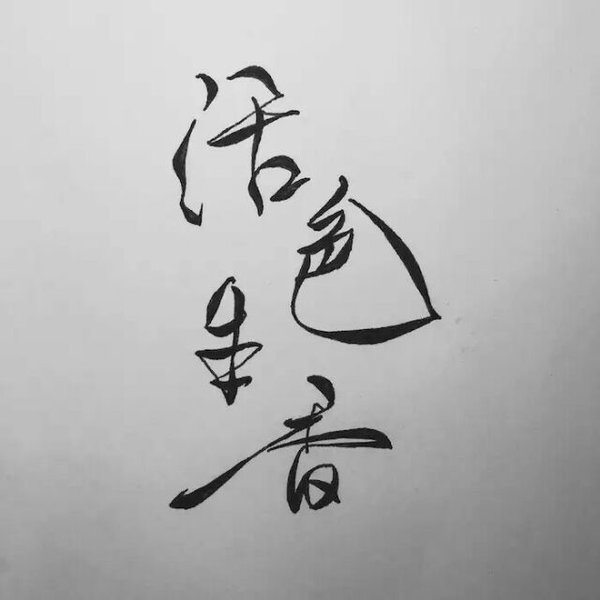 活色生香